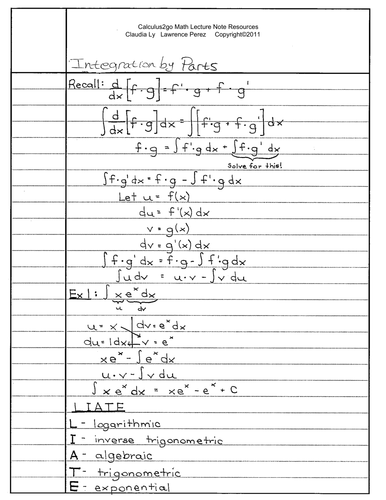 Calculus2go Math Lecture Note Resources
Claudia Ly Lawrence Perez Copyright©2011
Integration by Parts
Recall: d/dx [f·g] = f'·g + f·g'
∫ d/dx [f·g] dx = ∫ [f'·g + f·g'] dx
f·g = ∫ f'·g dx + ∫ f·g' dx
Solve for this!
∫ f·g' dx = f·g - ∫ f'·g dx
Let u = f(x)
du = f'(x) dx
v = g(x)
dv = g'(x) dx
∫ f·g' dx = f·g - ∫ f'·g dx
∫ u dv = u·v - ∫ v du
Ex 1: ∫ x e^x dx
u dv
u = x dv = e^x dx
du = 1dx v = e^x
xe^x - ∫ e^x dx
u·v - ∫ v du
∫ x e^x dx = xe^x - e^x + C
LIATE
L - logarithmic
I - inverse trigonometric
A - algebraic
T - trigonometric
E - exponential